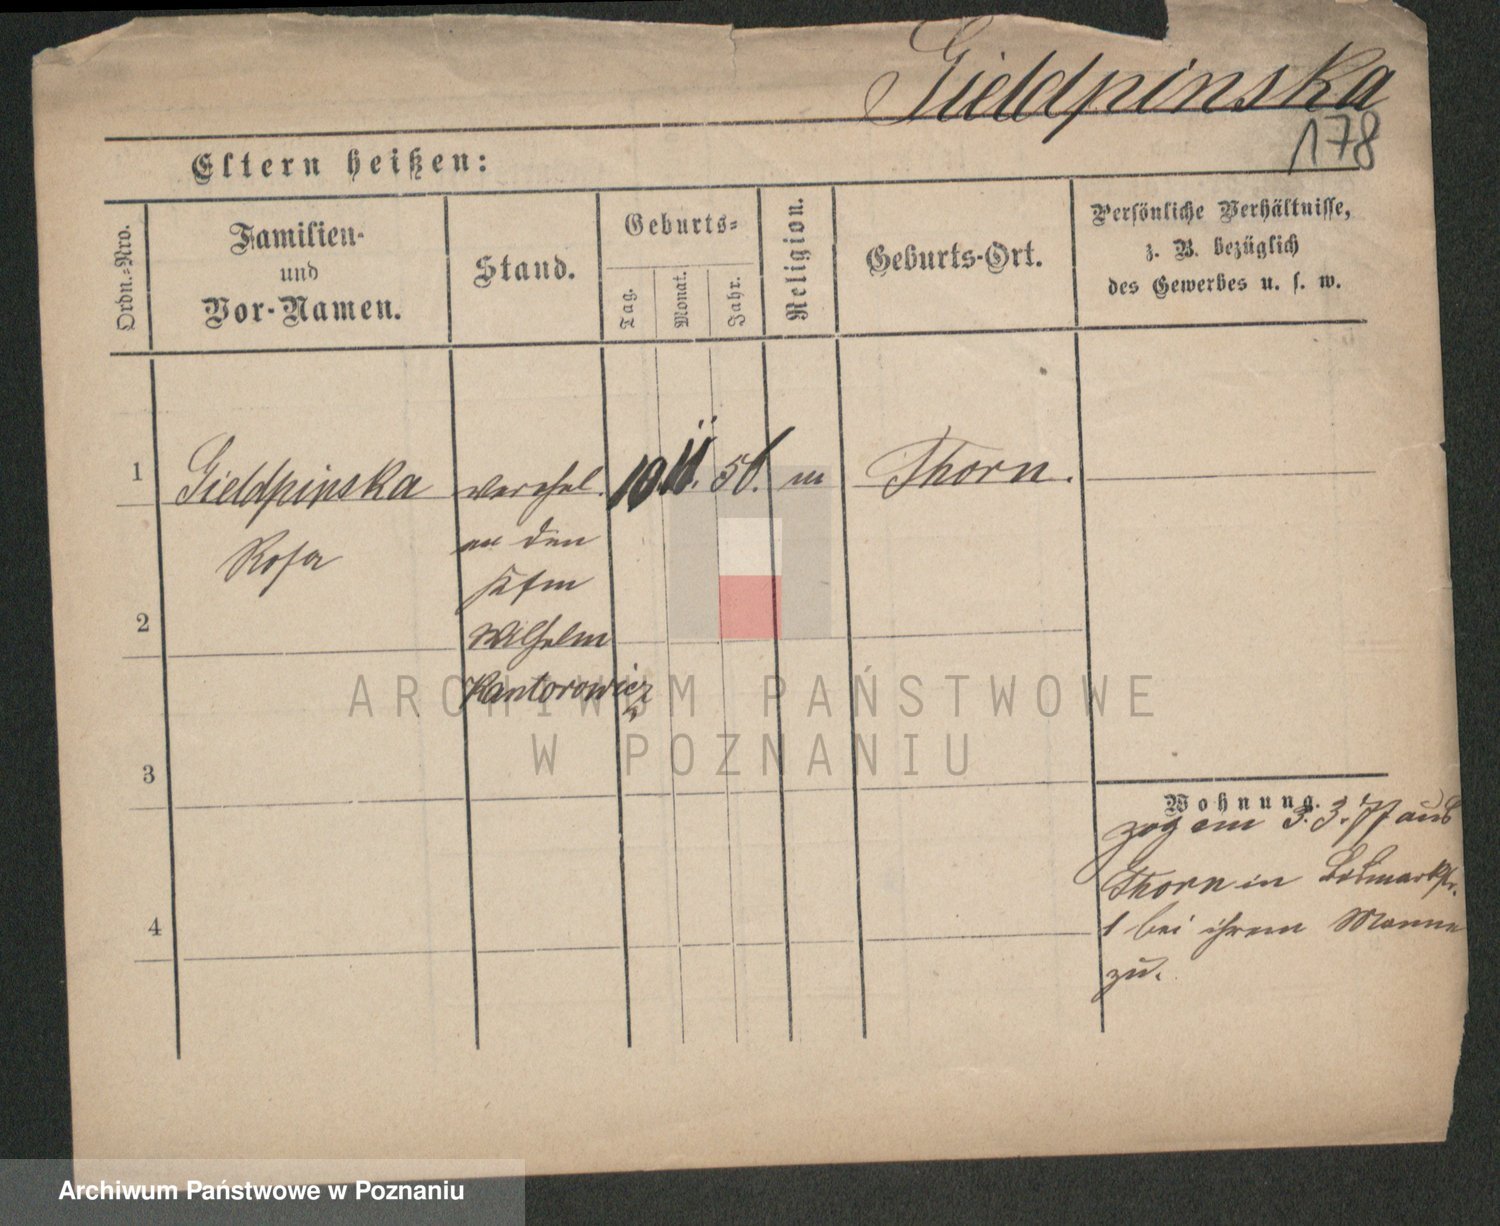 Gieldpinska
178
Eltern heißen:
Ordn.-Nro.
Familien-
und
Vor-Namen.
Stand.
Geburts-
Tag.
Monat.
Jahr.
Religion.
Geburts-Ort.
Persönliche Verhältnisse,
z. B. bezüglich
des Gewerbes u. s. w.
1 Gieldpinska verehel. 10 11. 56. m Thorn.
Rosa
an den
Kfm
2
Wilhelm
Kantorowicz
3
4
Wohnung.
zog am 3.3.77 aus
Thorn in Bismarkstr.
1 bei ihrem Manne
zu.
ARCHIWUM PAŃSTWOWE
W POZNANIU
Archiwum Państwowe w Poznaniu